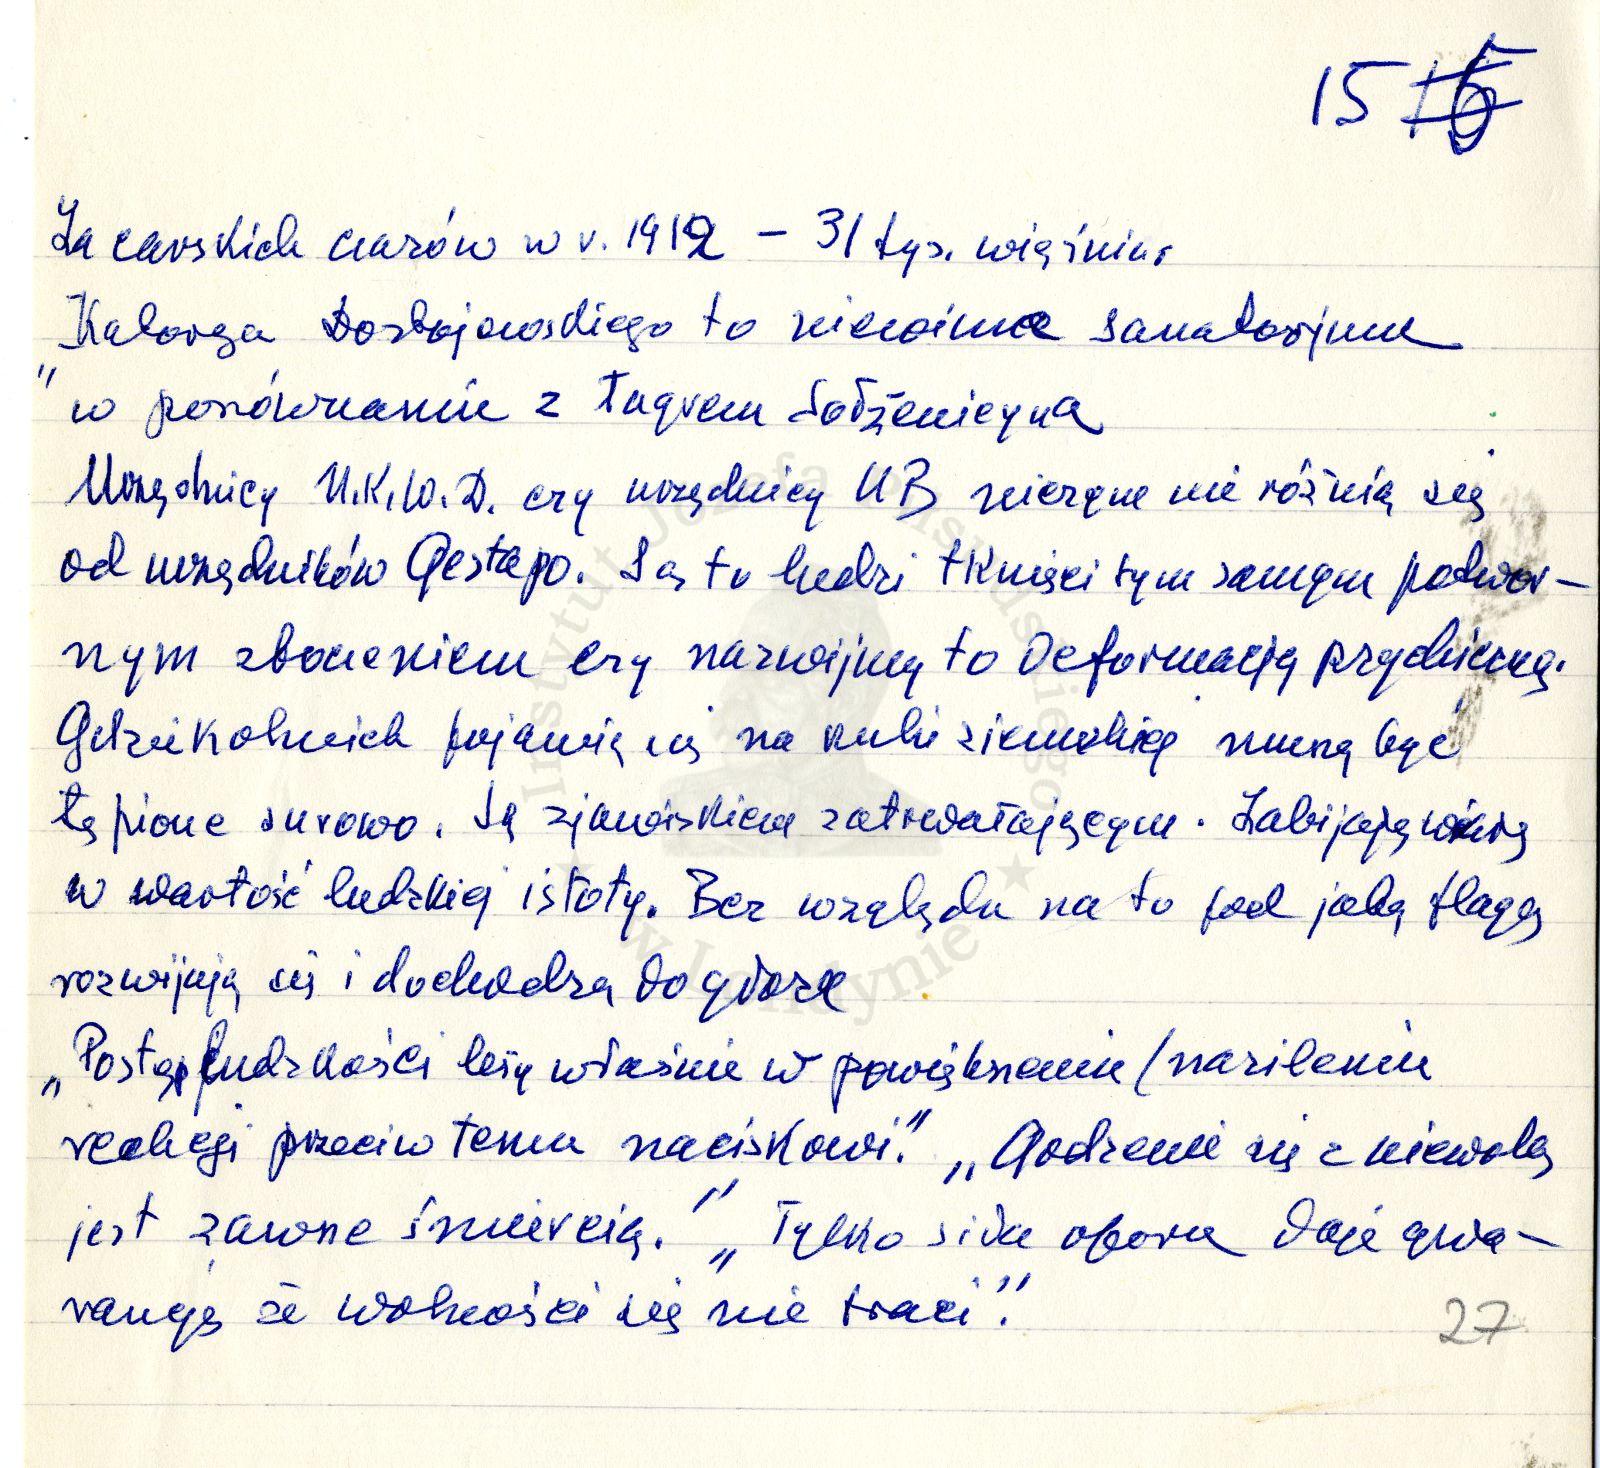 15 16
Za carskich czasów w r. 1912 – 31 tys. więźniów
Katorga Dostojewskiego to niewinne sanatorjum
" w porównaniu z Łagrem Sołżenicyna
Urzędnicy N.K.W.D. czy urzędnicy UB niczym nie różnią się
od urzędników Gestapo. Są to ludzi tknięci tym samym potwor–
nym zboczeniem czy nazwijmy to Deformacją psychiczną.
Gdziekolwiek pojawią się na kuli ziemskiej muszą być
tępione surowo. Są zjawiskiem zatrważającym. Zabijają wiarę
w wartość ludzkiej istoty. Bez względu na to pod jaką flagą
rozwijają się i dochodzą do głosu
„Postęp ludzkości leży właśnie w powiększeniu / nasileniu
reakcji przeciw temu naciskowi." „Godzenie się z niewolą
jest zawsze śmiercią." „Tylko siła oporu daje gwa–
rancję że wolności się nie traci".
27
Instytut Józefa Piłsudskiego
w Londynie